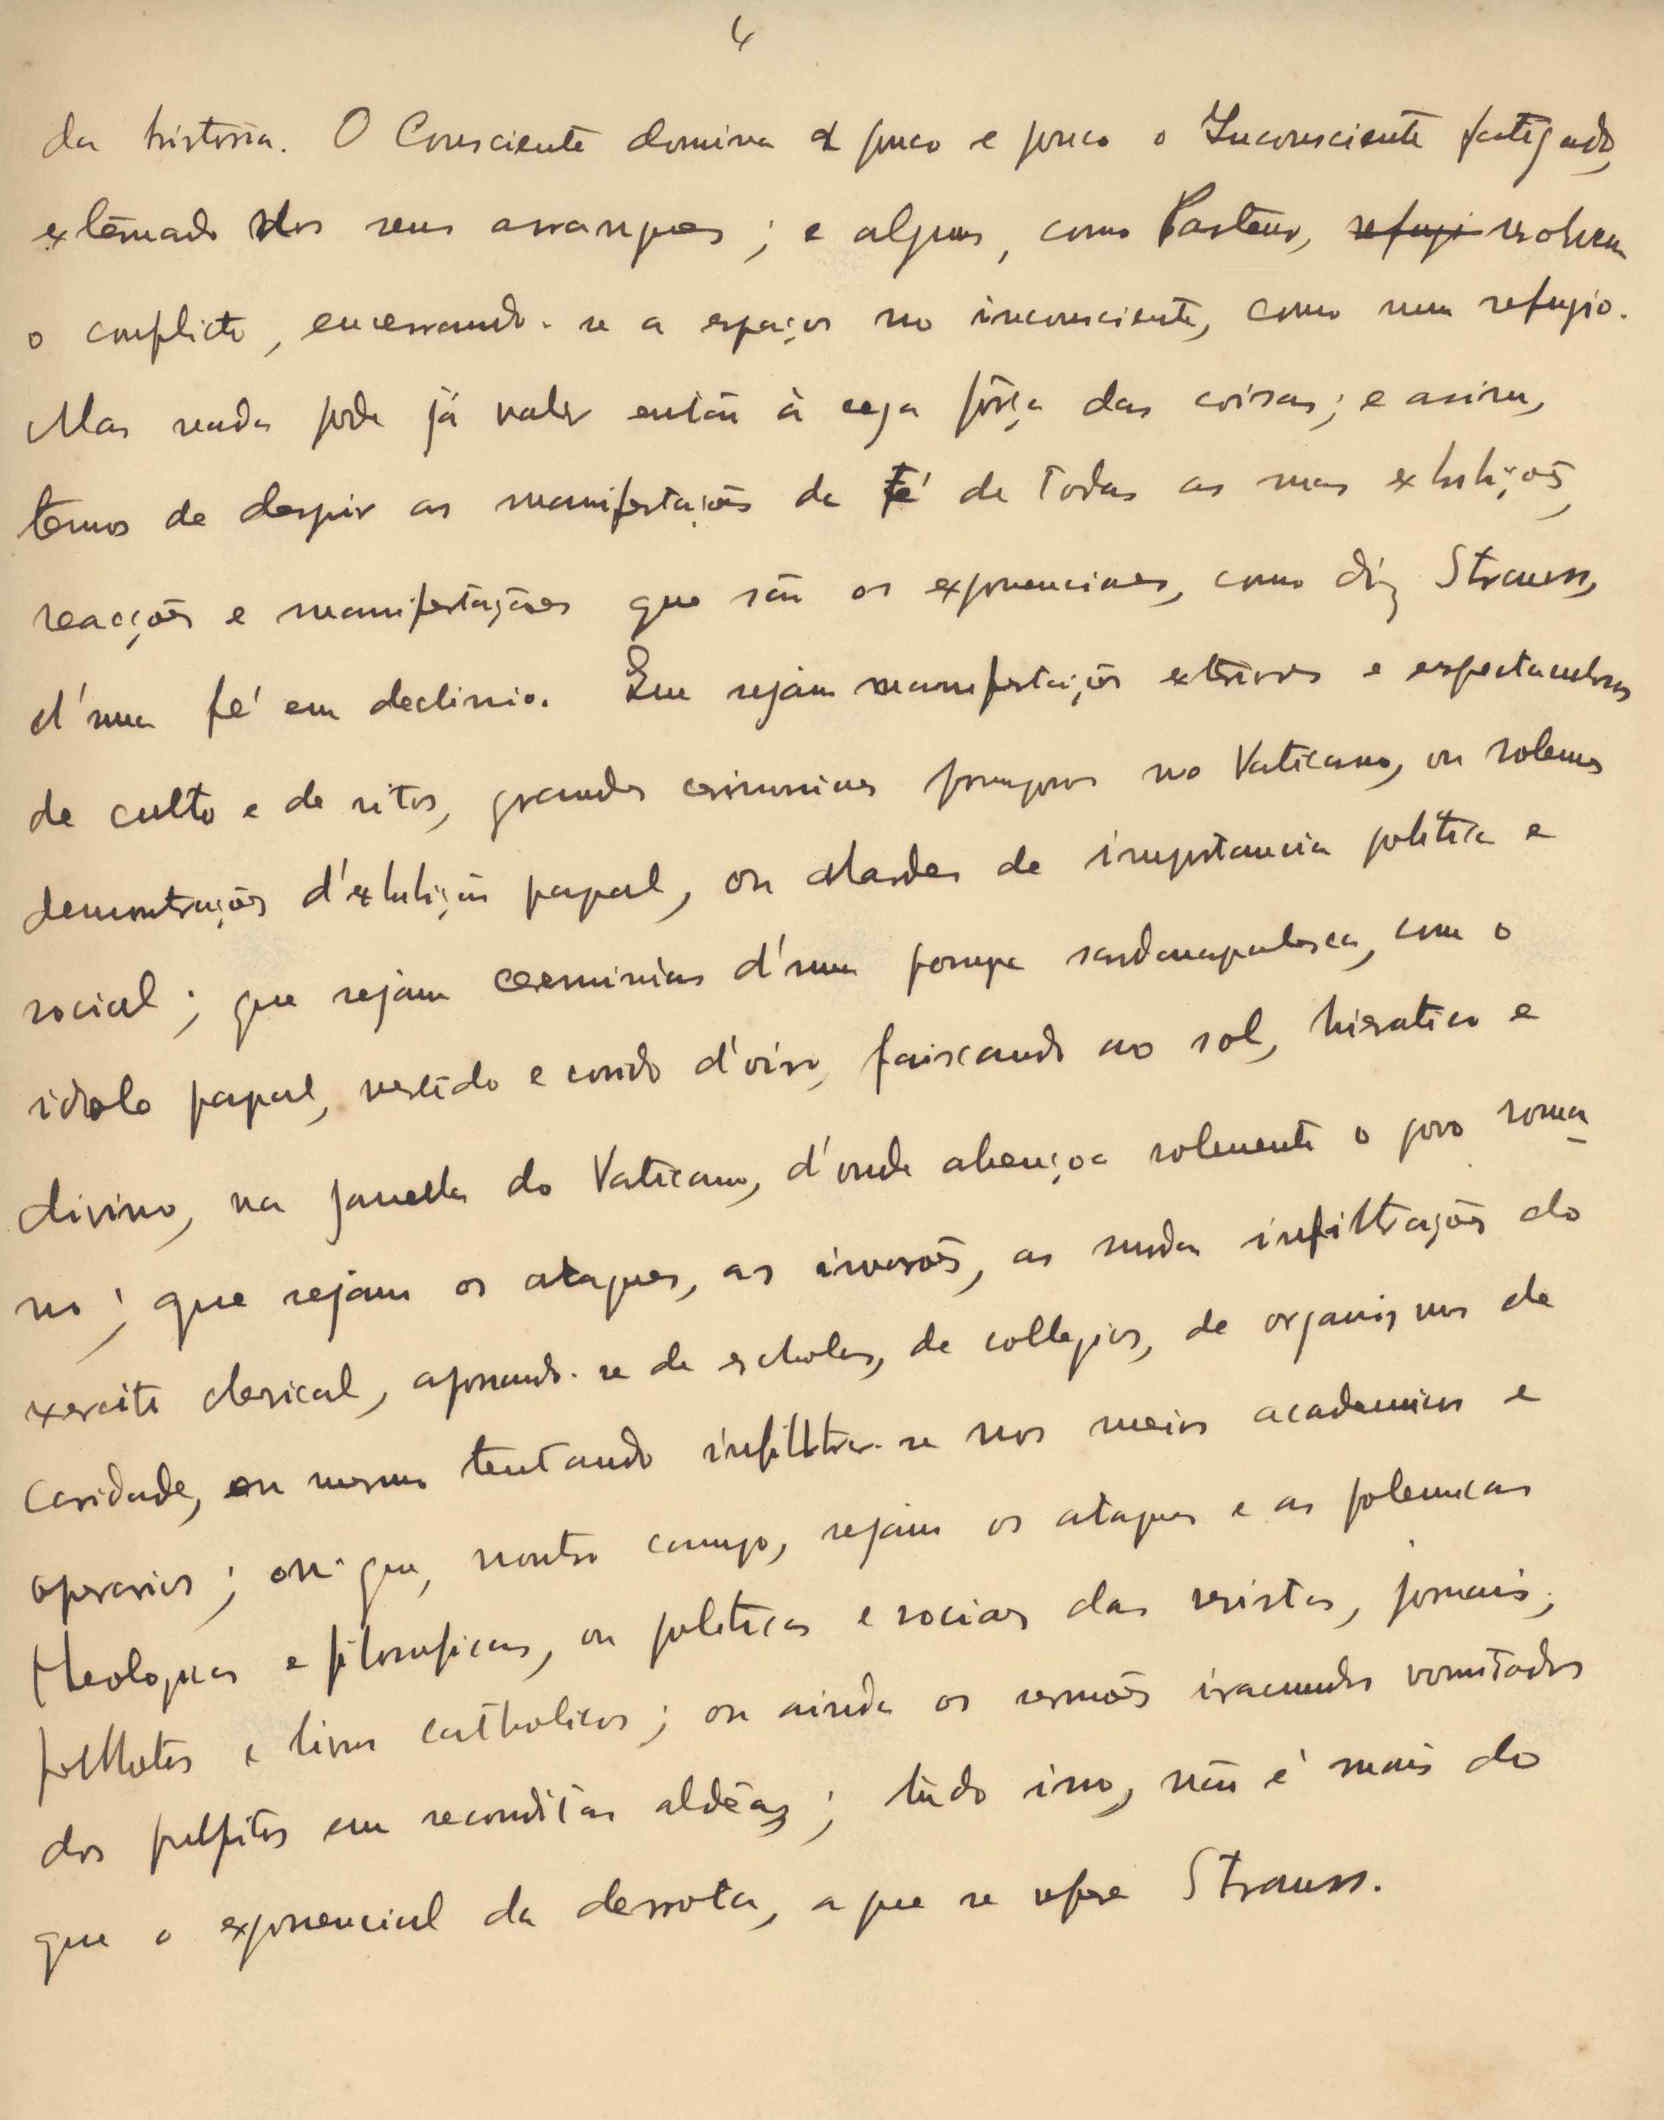 4
da historia. O Consciente domina a pouco e pouco o Inconsciente fatigado,
extenuado dos seus arranques; e alguns, como Pasteur, refugi resolvem
o conflicto, encerrando-se a espaços no inconsciente, como num refugio.
Mas nada pode já valer então à cega fôrça das coisas; e assim,
temos de despir as manifestações da fé de todas as suas exhibições,
reacções e manifestações que são os exponenciaes, como diz Strauss,
d'uma fé em declinio. Que sejam manifestações exteriores e espectaculosas
de culto e de ritos, grandes cerimonias pomposas no Vaticano, ou solemnes
demonstrações d'exhibição papal, ou alardes de importancia politica e
social; que sejam ceremonias d'uma pompa sardanapalesca, com o
idolo papal, vestido e c'roado d'oiro, faiscando ao sol, hieratico e
divino, na janella do Vaticano, d'onde abençoa solemente o povo roma
no; que sejam os ataques, as invasões, as mudas infiltrações do
exercito clerical, apossando-se de escholas, de collegios, de organismos de
caridade, ou mesmo tentando infilltrar-se nos meios academicos e
operarios; ou que, noutro campo, sejam os ataques e as polemicas
theologicas e filosoficas, ou politicas e sociaes das revistas, jornais,
folhetos e livros catholicos; ou ainda os sermões iracundos vomitados
dos pulpitos em reconditas aldêas; tudo isso, não é mais do
que o exponencial da derrota, a que se refere Strauss.